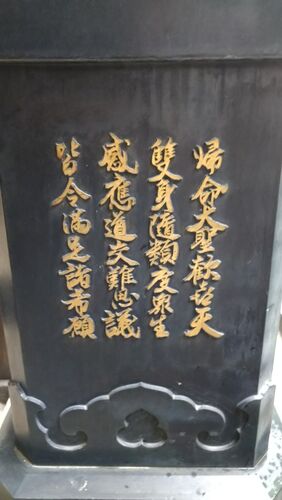 歸命大聖歡喜天
雙身隨類度眾生
感應道交難思議
皆令滿足諸希願